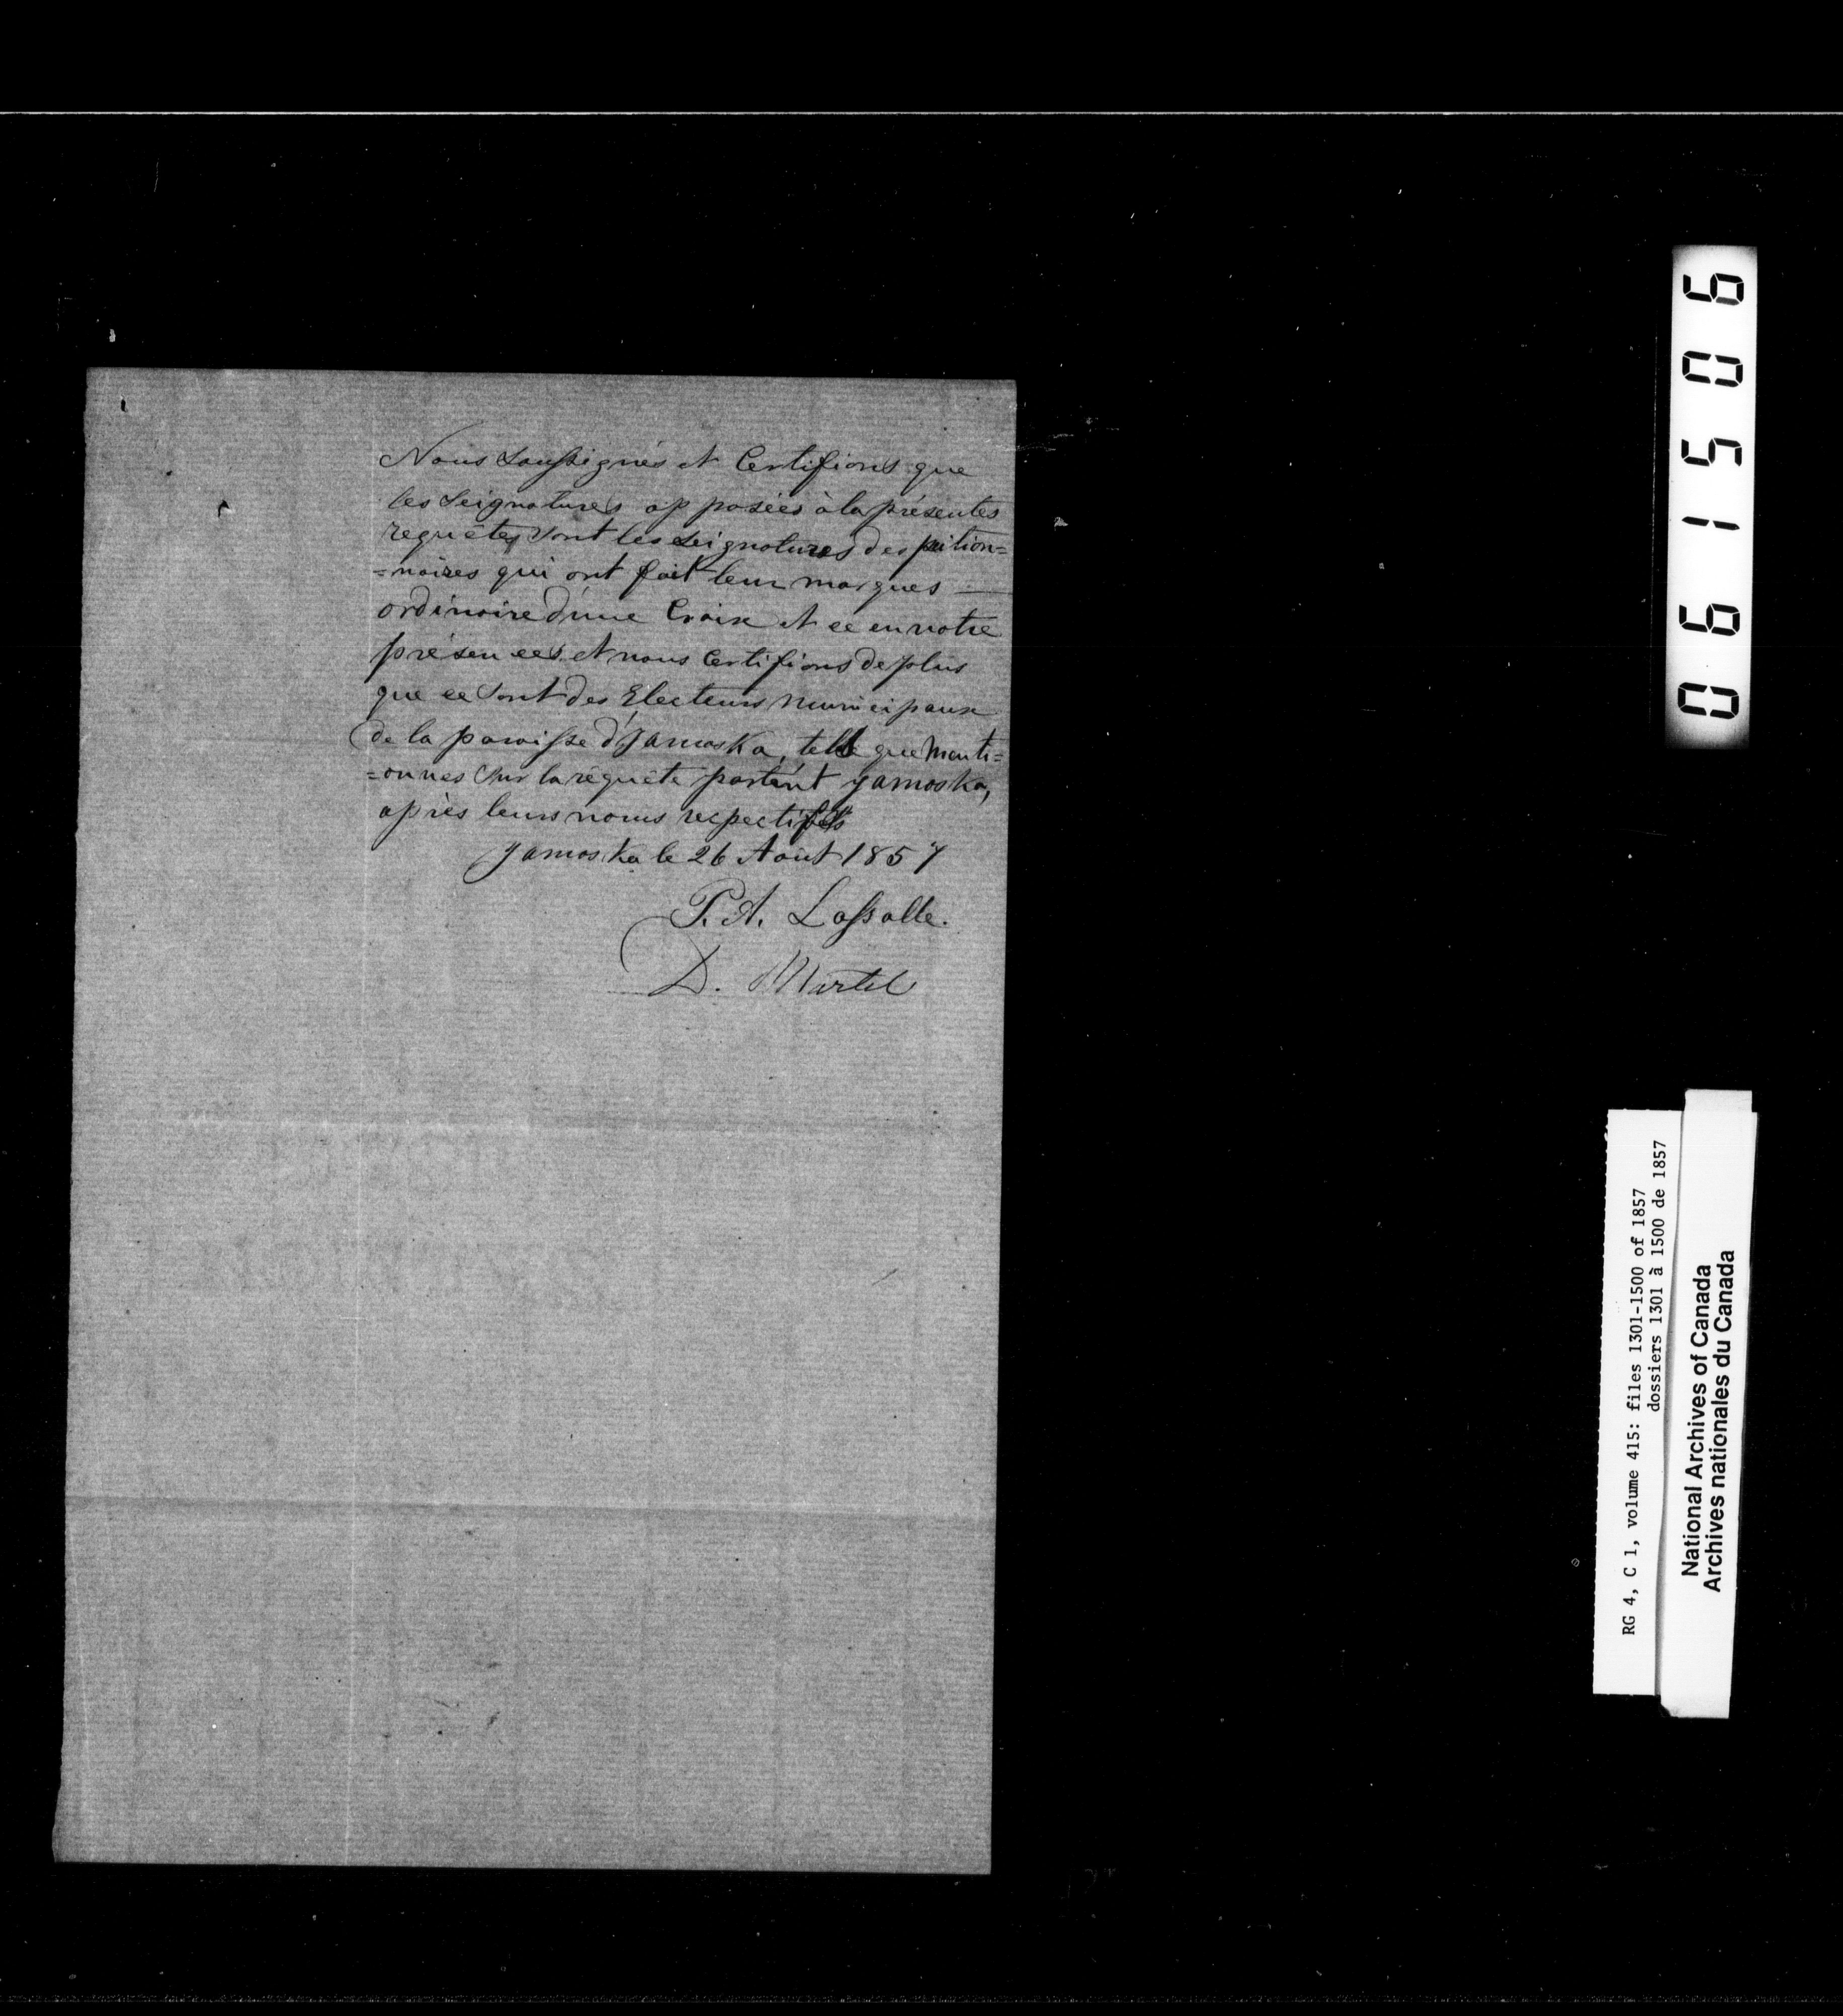 Nous Soussignés et Certifions que
les Seignatures apposées à la présentes
requêtes sont les Seignatures des petition=
=naires qui ont fait leur marques —
ordinaire d'une Croix et ce en notre
présences et nous Certifions de plus
que ce sont des Electeurs municipaux
de la paroisse d'Yamaska, telle que Menti=
=onnes sur la réquête portant Yamaska,
après leurs noms respectifs
Yamaska le 26 Août 1857
P. A. Lassalle.
D. Martel
061506
RG 4, C 1, volume 415: files 1301-1500 of 1857
dossiers 1301 à 1500 de 1857
National Archives of Canada
Archives nationales du Canada